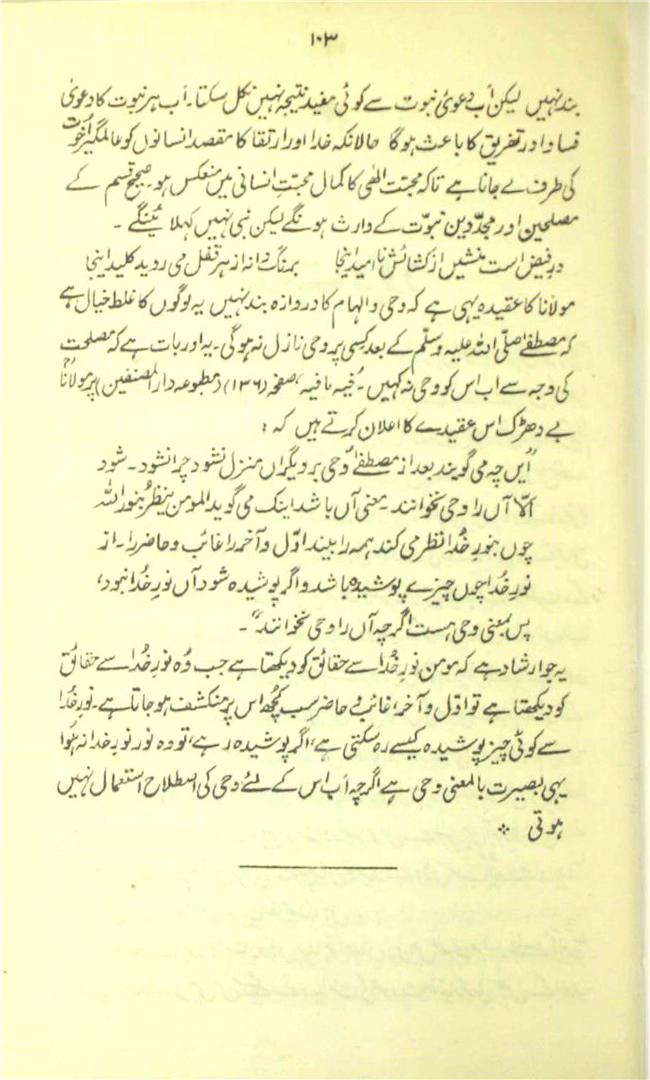 ۱۰۳
بند نہیں لیکن اب دعویٰ نبوت سے کوئی مفید نتیجہ نہیں نکل سکتا۔ اب ہر نبوت کا دعویٰ
فساد اور تفریق کا باعث ہوگا حالانکہ خدا اور ارتقا کا مقصد انسانوں کو عالمگیر اخوت
کی طرف لے جانا ہے تاکہ محبت الٰہی کا کمال محبتِ انسانی میں منعکس ہو۔ صحیح قسم کے
مصلحین اور مجدّدین نبوّت کے وارث ہونگے لیکن نبی نہیں کہلائینگے۔
درِ فیض است منشیں از کشائش نا امید اینجا برنگِ دانہ از ہر قفل می روید کلید اینجا
مولانا کا عقیدہ یہی ہے کہ وحی والہام کا دروازہ بند نہیں یہ لوگوں کا غلط خیال ہے
کہ مصطفےٰ صلّی اللہ علیہ وسلّم کے بعد کسی پر وحی نازل نہ ہوگی۔ یہ اور بات ہے کہ مصلحت
کی وجہ سے اب اس کو وحی نہ کہیں۔ فیہ مافیہ، صفحہ (۱۳۶) (مطبوعہ دار المصنفین) پر مولاناؒ
بے دھڑک اس عقیدے کا اعلان کرتے ہیں کہ :
"ایں چہ می گویند بعد از مصطفےٰؐ وحی بر دیگراں منزل نشود چرا نشود۔ شود
الّا آں را وحی نخوانند۔ معنی آں باشد اینک می گوید المومن ینظرُ بنور اللہ
چوں بنورِ خُدا نظر می کند ہمہ را بیند اوّل و آخر را غائب و حاضر را۔ از
نورِ خُدا چوں چیزے پوشیدہ باشد و اگر پوشیدہ شود آں نورِ خُدا نبود،
پس بمعنی وحی ہست اگرچہ آں را وحی نخوانند"۔
یہ جو ارشاد ہے کہ مومن نورِ خُدا سے حقائق کو دیکھتا ہے جب وُہ نورِ خُدا سے حقائق
کو دیکھتا ہے تو اوّل و آخر، غائب و حاضر سب کچُھ اس پر منکشف ہو جاتا ہے۔ نورِ خُدا
سے کوئی چیز پوشیدہ کیسے رہ سکتی ہے، اگر پوشیدہ رہے، تو وہ نور نورِ خدا نہ ہُوا
یہی بصیرت بالمعنی وحی ہے اگرچہ اَب اس کے لئے وحی کی اصطلاح استعمال نہیں
ہوتی ٭